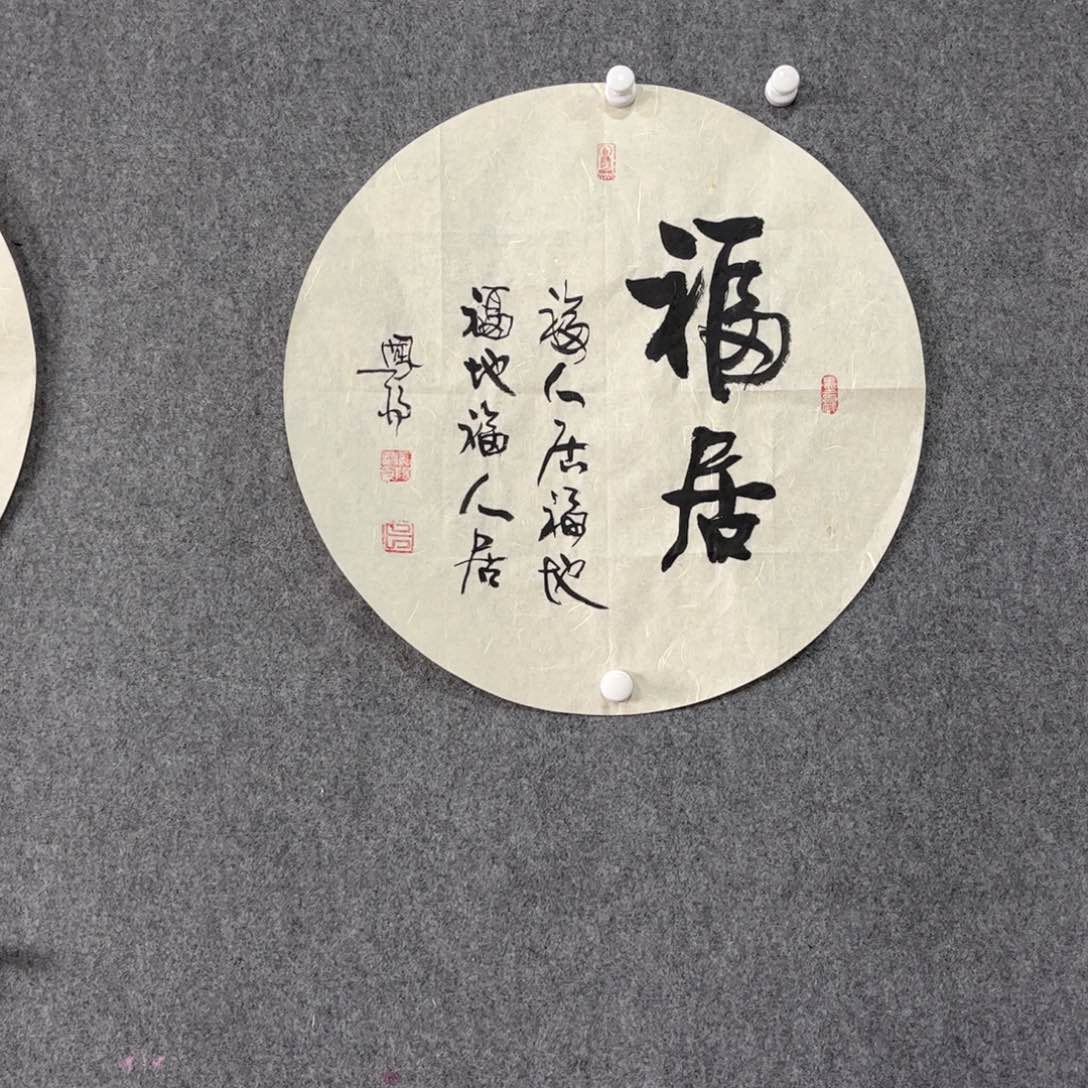 福居
福人居福地
福地福人居